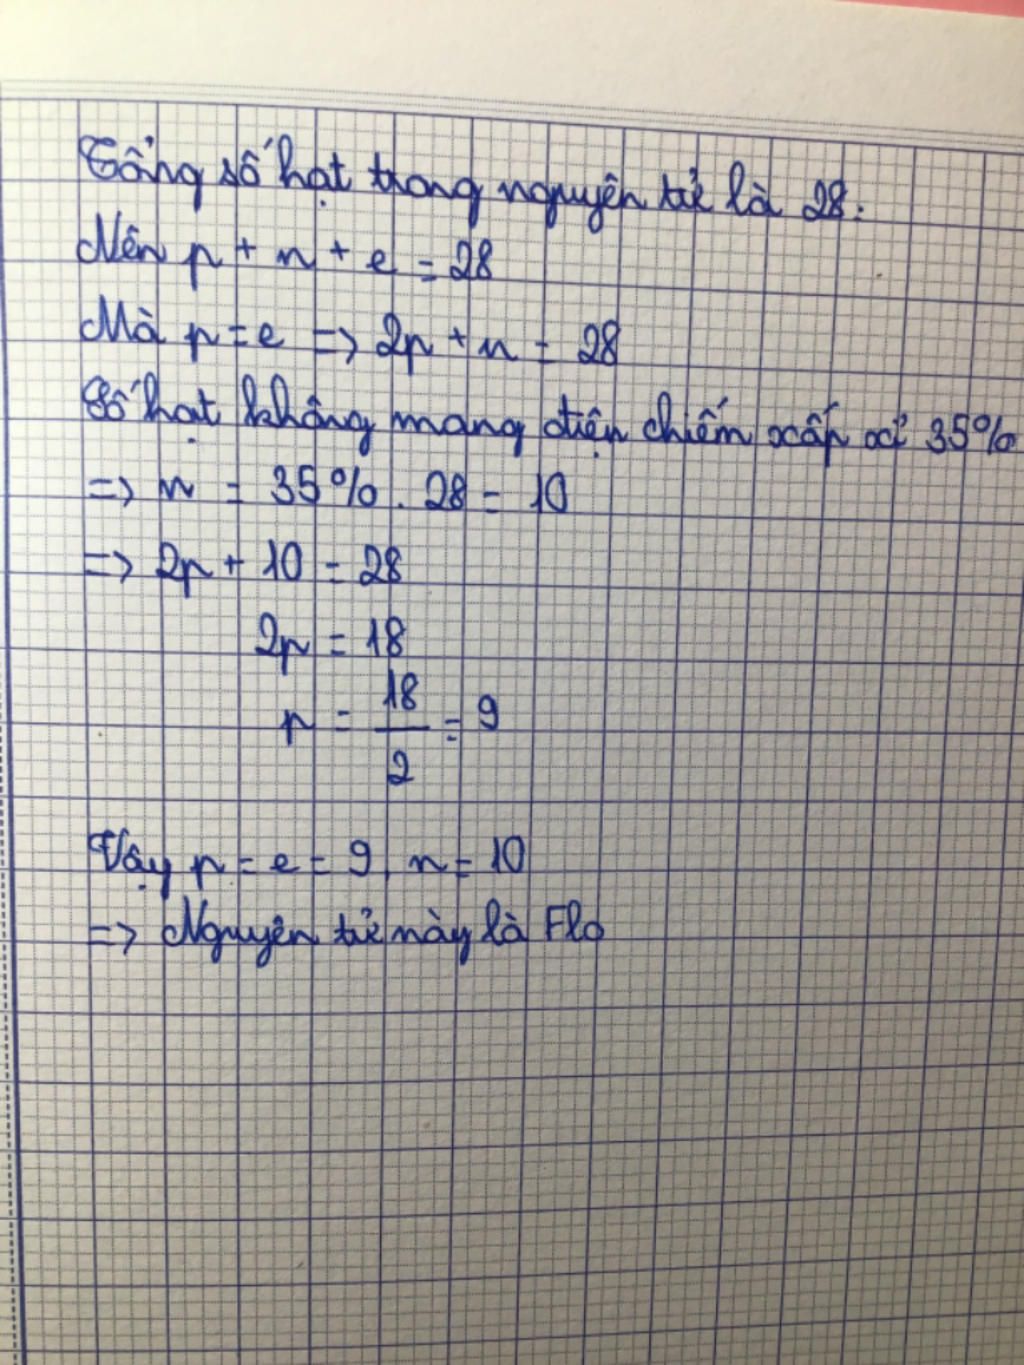 Tổng số hạt trong nguyên tử là 28.
Nên p + n + e = 28
Mà p = e => 2p + n = 28
Số hạt không mang điện chiếm xấp xỉ 35%
=> n = 35% . 28 = 10
=> 2p + 10 = 28
2p = 18
p = 18/2 = 9
Vậy p = e = 9, n = 10
=> Nguyên tử này là Flo